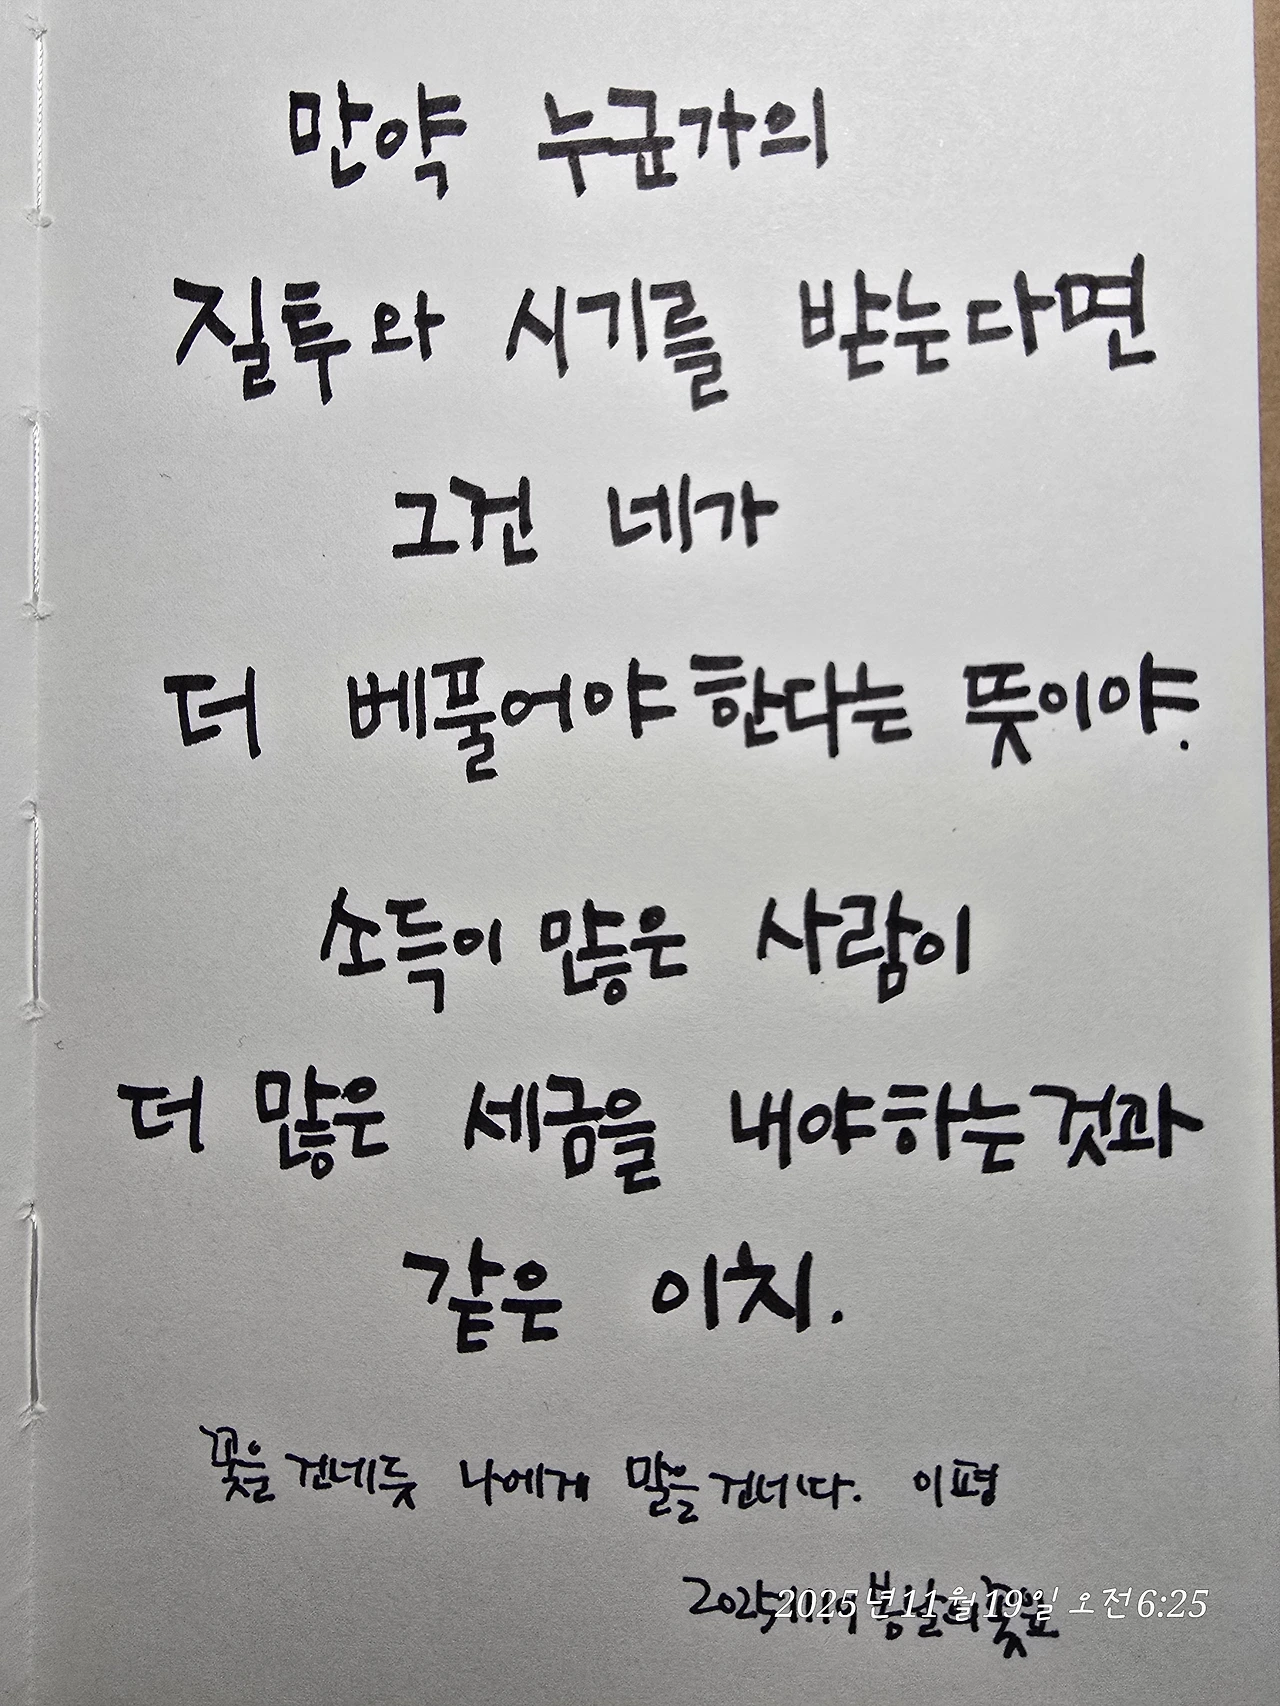 만약 누군가의
질투와 시기를 받는다면
그건 네가
더 베풀어야 한다는 뜻이야.
소득이 많은 사람이
더 많은 세금을 내야하는것과
같은 이치.
꽃을 건네듯 나에게 말을 건네다. 이평
2025 봄날의꽃잎
2025년 11월 19일 오전 6:25